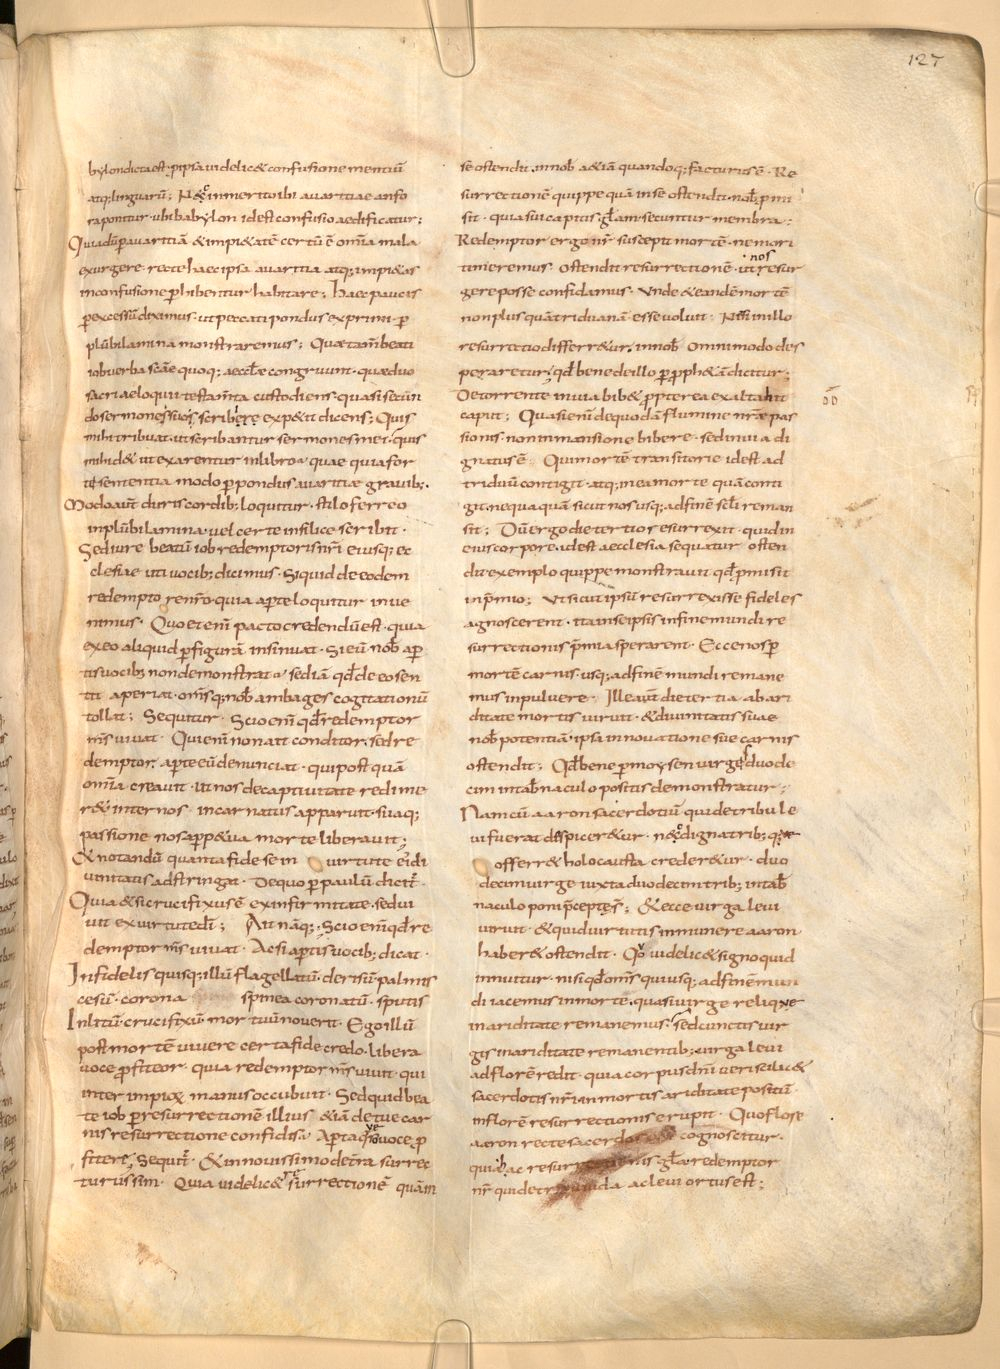 127
bylon dicta est · ꝓ ipsa videlic& confusione mentiū
atq; linguarū; N& inmerito ibi avaritiae anfo
ra ponitur · ubi babylon id est confusio aedificatur;
Quia dū ꝑ avaritiā & impi&atē certū ē om̄a mala
exurgere · recte haec ipsa avaritia atq; impi&as
in confusione ꝑhibentur habitare; haec paucis
ꝑ excessū diximus · ut peccati pondus exprimi · ꝑ
plūbi lamina monstraremus; Quae tam̄ beati
iob verba sc̄ae quoq; aeccl̄ae congruunt · quae duo
sacri aeloquii testam̄ta custodiens · quasi secun
do sermones suos scribere exp&it dicens; Quis
mihi tribuat · ut scribantur sermones mei · quis
mihi d& ut exarentur in libro · quae quia for
ti sententia modo ꝑ pondus avaritiae gravib;
Modo aut̄ duris cordib; loquitur · stilo ferreo
in plūbi lamina · vel certe in silice scribit ·
Sed iure beatū iob redemptoris n̄ri eiusq; ec
clesiae uti vocib; dicimus · Si quid de eodem
redemptore n̄ro · quia aꝑte loquitur inve
nimus · Quo etenī pacto credendū est · quia
ex eo aliquid ꝑ figurā insinuat · Si eū nob̄ aꝑ
tis vocib; non demonstrat · sed iā qd̄ de eo sen
tit aperiat · om̄sq; nob̄ ambages cogitationū
tollat; Sequitur · Scio enī qd̄ redemptor
m̄s vivat · Qui enī non ait conditor · sed re
demptor aꝑte eū denunciat · qui post quā
om̄ia creavit · ut nos de captivitate redime
r& inter nos incarnatus apparuit · suaq;
passione nos a ꝑp&ua morte liberavit;
& notandū quanta fide se in virtute ei͛ di
vinitatis adstringat · De quo ꝑ paulū dicit̄ ·
Quia &si crucifixus ē ex infirmitate · sed vi
vit ex virtute dī; Ait nāq; · Scio enī qd̄ re
demptor m̄s vivat · Ac si aꝑtis vocib; dicat ·
Infidelis quisq; illū flagellatū · derisū · palmis
cesū · corona spinea coronatū · sputis
Inlitū · crucifixū mortuū noverit · Ego illū
post mortē vivere certa fide credo · libera
voce ꝓfiteor · quia redemptor m̄s vivit · qui
inter impioꝝ manus occubuit · Sed quid bea
te iob ꝑ resurrectionē illius &iā de tue car
nis resurrectione confidis · Aꝑta voce ꝓ
fitere; Sequit̄ · & in novissimo de t̄ra surrec
turus sim · Quia videlic& resurrectionē quā in
se ostendit · in nob̄ &iā quandoq; facturus ē · Re
surrectionē quippe quā in se ostendit · nob̄ ꝓmi
sit · quia sui capitis gl̄am secuntur membra;
Redemptor ergo nr̄ suscepit mortē · ne mori
timeremus ostendit resurrectionē · ut nos resur
gere posse confidamus · Unde & eandē mortē
non plus quā triduanā esse voluit · Ne si in illo
resurrectio differr&ur · in nob̄ omnimodo des
peraretur; qd̄ bene de illo ꝑ ꝓph&ā dicitur;
De torrente in via bib& ꝓpterea exaltabit
caput; Quasi enī de quodā flumine nr̄ae pas
sionis · non in mansione bibere · sed in via di
gnatus ē · Qui mortē transitorie id est ad
triduū contigit · atq; in ea morte quā conti
git · nequaquā sicut nos usq; ad finē scl̄i reman
sit; Dū ergo die tertio resurrexit · quid in
eius corpore · id est aecclesia sequatur osten
dit exemplo quippe monstravit qd̄ ꝓmisit
in p̄mio; Ut sicut ipsū resurrexisse fideles
agnoscerent · ita in se ipsis in fine mundi re
surrectionis p̄mia sperarent · Ecce nos ꝑ
mortē carnis · usq; ad finē mundi remane
mus in pulvere · Ille aut̄ die tertia ab ari
ditate mortis viruit · & divinitatis suae
nob̄ potentiā · ipsa innovatione sue carnis
ostendit; Qd̄ bene ꝑ moysen virge duode
cim in tab̄naculo positis demonstratur;
Nam cū aaron sacerdotiū qui de tribu le
vi fuerat despicer&ur · n& dignatrib; que
offerr& holocausta creder&ur · duo
decim virge iuxta duodecim trib; in tab̄
naculo poni p̄cept; & ecce virga levi
viruit · & quid virtutis in munere aaron
haber& ostendit · Quo videlic& signo quid
innuitur · nisi qd̄ om̄s qui usq; ad finē mun
di iacemus in morte · quasi virge reliq
in ariditate remanemus · sed cunctis vir
gis in ariditate remanentib; virga levi
ad florē redit · quia corpus dn̄i veri scilic&
sacerdotis nr̄i in mortis ariditate positū ·
in florē resurrectionis erupit · Quo flore
aaron recte sacerdos cognoscitur ·
quia hac resurrectionis gl̄a redemptor
nr̄ qui de tribu iuda ac levi ortus est;